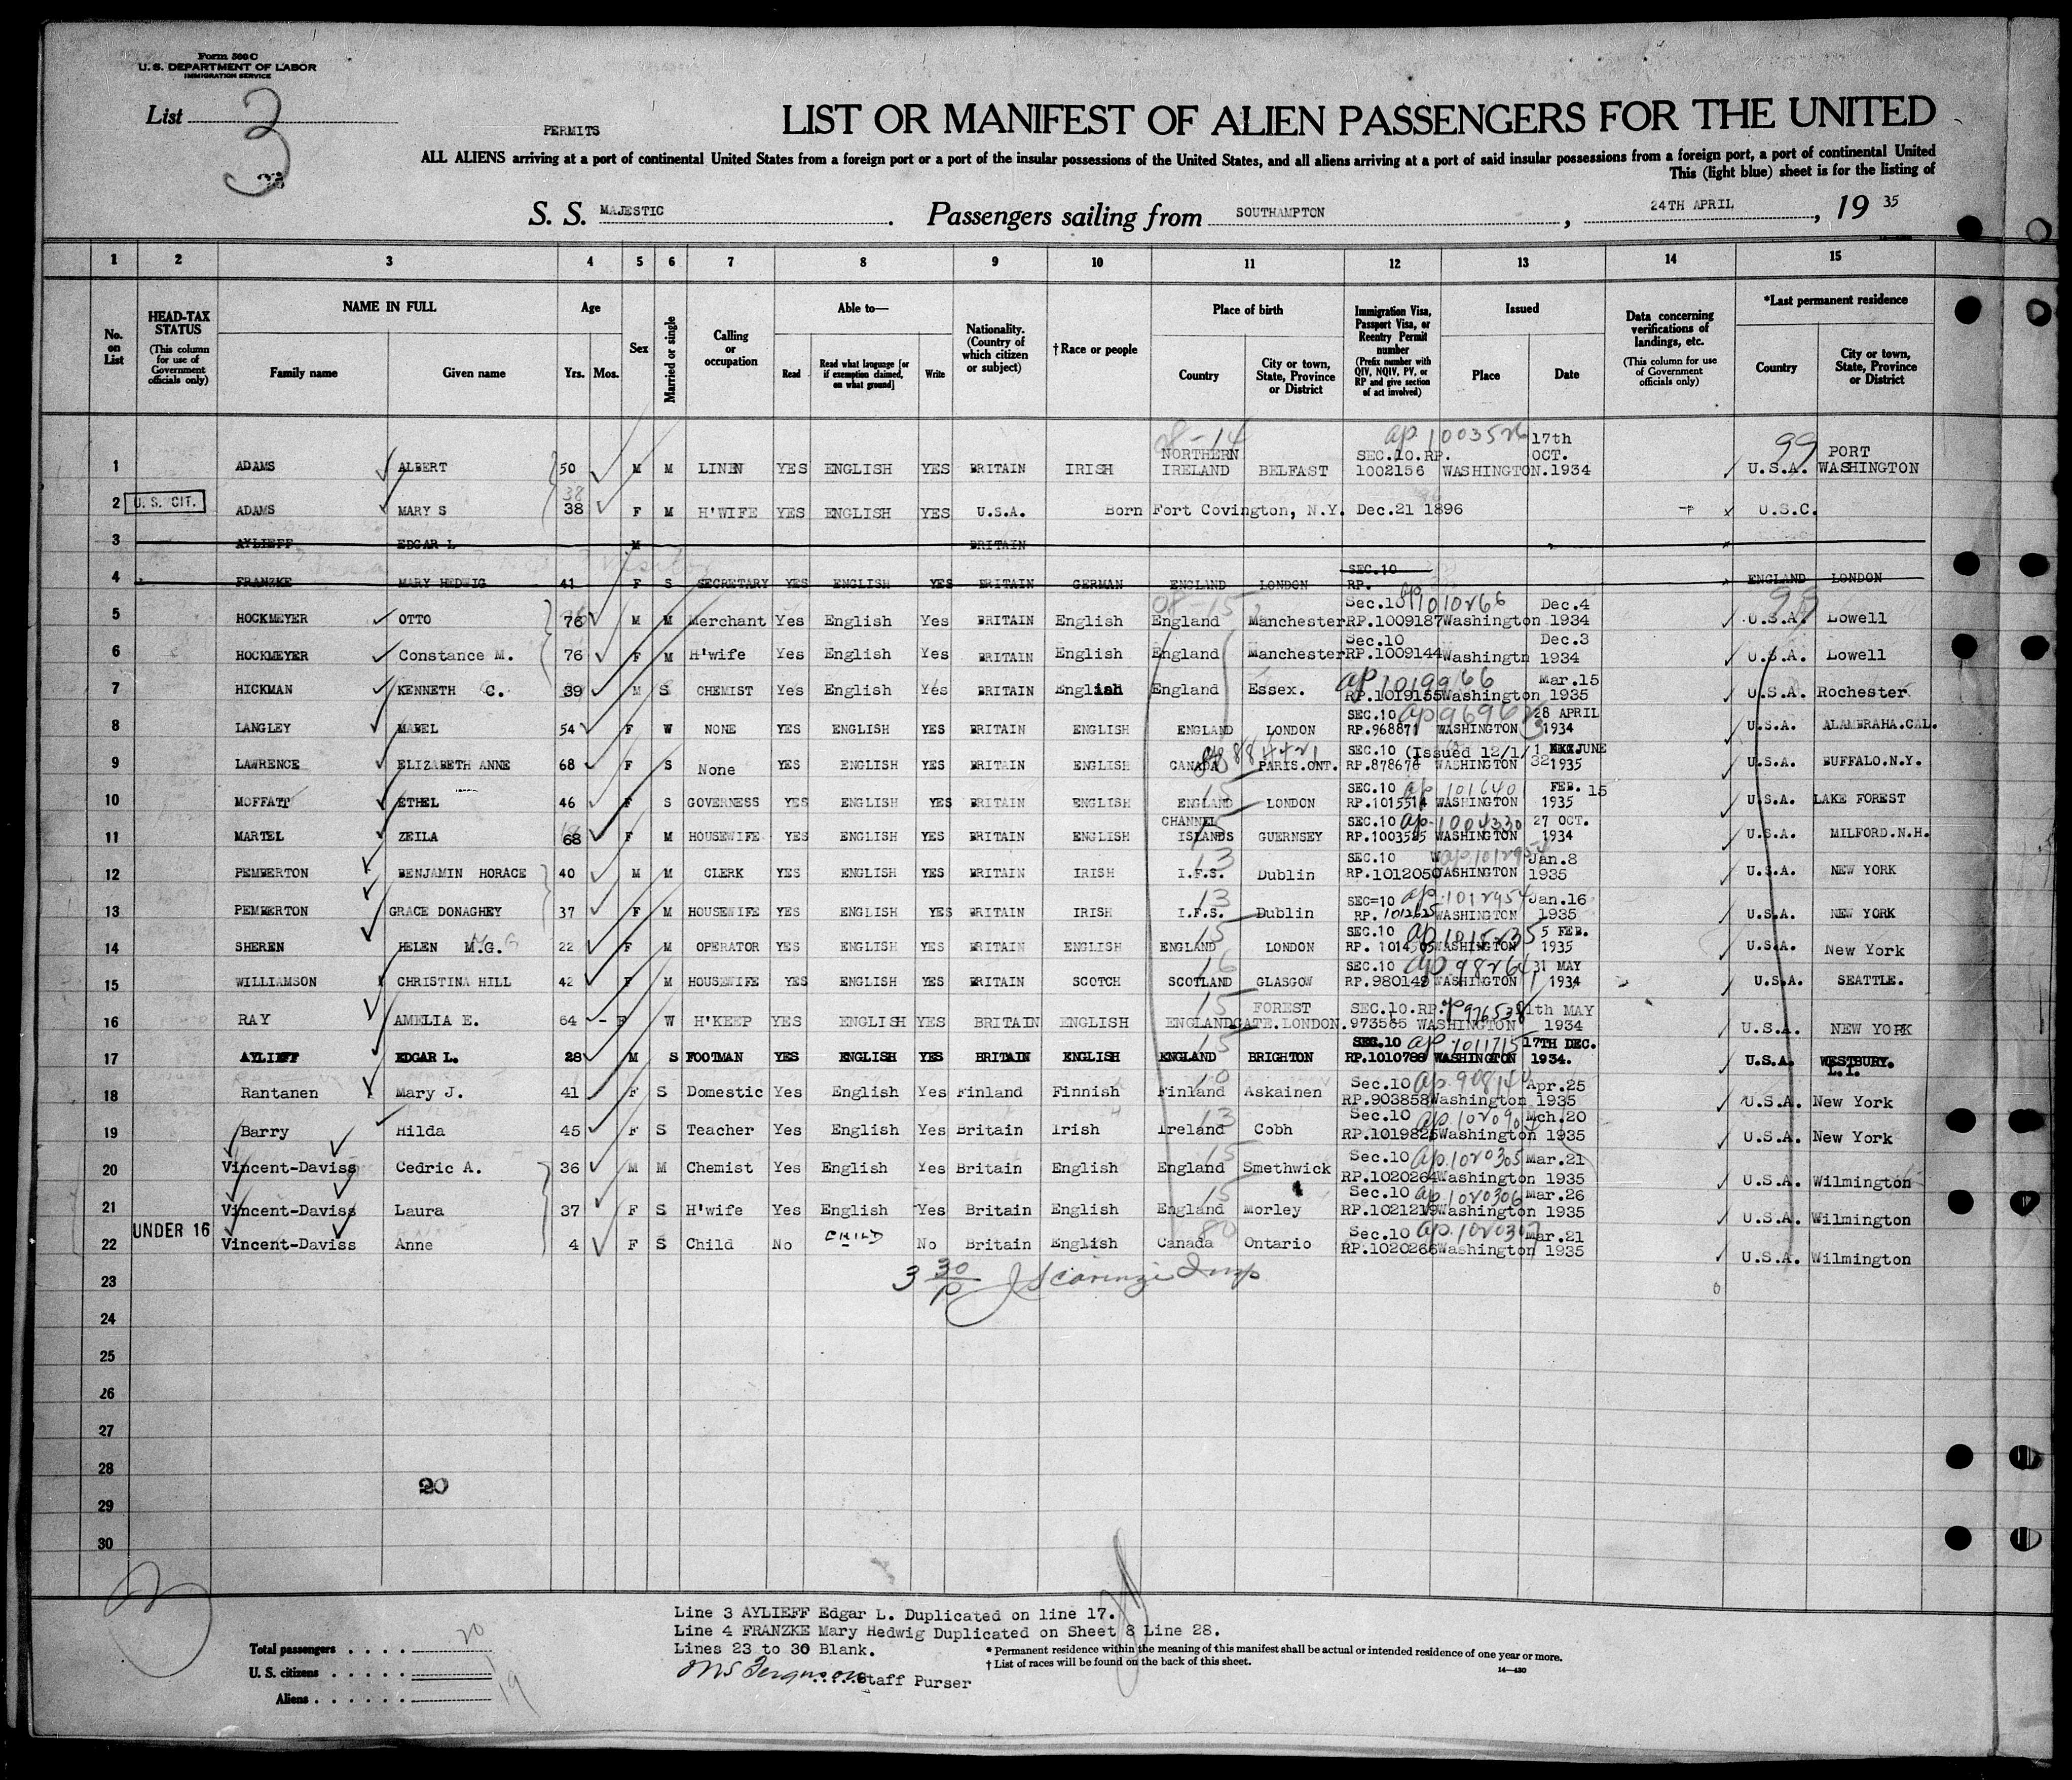 Form 500 C
U. S. DEPARTMENT OF LABOR
IMMIGRATION SERVICE
List 3
PERMITS
LIST OR MANIFEST OF ALIEN PASSENGERS FOR THE UNITED
ALL ALIENS arriving at a port of continental United States from a foreign port or a port of the insular possessions of the United States, and all aliens arriving at a port of said insular possessions from a foreign port, a port of continental United
This (light blue) sheet is for the listing of
S. S. MAJESTIC. Passengers sailing from SOUTHAMPTON, 24TH APRIL, 19 35
1 2 3 4 5 6 7 8 9 10 11 12 13 14 15
No. on List
HEAD-TAX STATUS (This column for use of Government officials only)
NAME IN FULL Family name Given name
Age Yrs. Mos.
Sex
Married or single
Calling or occupation
Able to— Read Read what language [or if exemption claimed, on what ground] Write
Nationality. (Country of which citizen or subject)
† Race or people
Place of birth Country City or town, State, Province or District
Immigration Visa, Passport Visa, or Reentry Permit number (Prefix number with QIV, NQIV, PV, or RP and give section of act involved)
Issued Place Date
Data concerning verifications of landings, etc. (This column for use of Government officials only)
*Last permanent residence Country City or town, State, Province or District
08-14 ap 1003526 17th 99 PORT
NORTHERN SEC.10.RP. OCT.
1 ADAMS ALBERT 50 M M LINEN YES ENGLISH YES BRITAIN IRISH IRELAND BELFAST 1002156 WASHINGTON.1934 U.S.A. WASHINGTON
38
2 U. S. CIT. ADAMS MARY S 38 F M H'WIFE YES ENGLISH YES U.S.A. Born Fort Covington, N.Y. Dec.21 1896 U.S.C.
3 AYLIEFF EDGAR L M BRITAIN
SEC.10
4 FRANZKE MARY HEDWIG 41 F S SECRETARY YES ENGLISH YES BRITAIN GERMAN ENGLAND LONDON RP. ENGLAND LONDON
08-15 Sec.10 ap 1010266 Dec.4 99
5 HOCKMEYER OTTO 76 M M Merchant Yes English Yes BRITAIN English England Manchester RP.1009187 Washington 1934 U.S.A. Lowell
Sec.10 Dec.3
6 HOCKMEYER Constance M. 76 F M H'wife Yes English Yes BRITAIN English England Manchester RP.1009144 Washingtn 1934 U.S.A. Lowell
ap 1019966 Mar.15
7 HICKMAN KENNETH C. 39 M S CHEMIST Yes English Yes BRITAIN English England Essex. RP.1019155 Washington 1935 U.S.A. Rochester
SEC.10 28 APRIL
8 LANGLEY MABEL 54 F W NONE YES ENGLISH YES BRITAIN ENGLISH ENGLAND LONDON RP.968871 WASHINGTON 1934 U.S.A. ALAMBRAHA.CAL.
SEC.10 (Issued 12/1/32 1 JUNE
9 LAWRENCE ELIZABETH ANNE 68 F S None YES ENGLISH YES BRITAIN ENGLISH CANADA PARIS.ONT. RP.878676 WASHINGTON 1935 U.S.A. BUFFALO.N.Y.
15 SEC.10 ap 101640 FEB. 15
10 MOFFATT ETHEL 46 F S GOVERNESS YES ENGLISH YES BRITAIN ENGLISH ENGLAND LONDON RP.1015514 WASHINGTON 1935 U.S.A. LAKE FOREST
CHANNEL SEC.10 ap. 1004330 27 OCT.
11 MARTEL ZEILA 68 F M HOUSEWIFE YES ENGLISH YES BRITAIN ENGLISH ISLANDS GUERNSEY RP.1003585 WASHINGTON 1934 U.S.A. MILFORD.N.H.
13 SEC.10 Jan.8
12 PEMBERTON BENJAMIN HORACE 40 M M CLERK YES ENGLISH YES BRITAIN IRISH I.F.S. Dublin RP.1012050 WASHINGTON 1935 U.S.A. NEW YORK
13 SEC=10 ap. 1012954 Jan.16
13 PEMBERTON GRACE DONAGHEY 37 F M HOUSEWIFE YES ENGLISH YES BRITAIN IRISH I.F.S. Dublin RP. 1012625 WASHINGTON 1935 U.S.A. NEW YORK
15 SEC.10 ap 1015235 5 FEB.
14 SHEREN HELEN M.G. 22 F M OPERATOR YES ENGLISH YES BRITAIN ENGLISH ENGLAND LONDON RP. 1014505 WASHINGTON 1935 U.S.A. New York
16 SEC.10 ap 98264 31 MAY
15 WILLIAMSON CHRISTINA HILL 42 F M HOUSEWIFE YES ENGLISH YES BRITAIN SCOTCH SCOTLAND GLASGOW RP.980149 WASHINGTON 1934 U.S.A. SEATTLE.
15 FOREST SEC.10.RP. ap 976538 11th MAY
16 RAY AMELIA E. 64 - F W H'KEEP YES ENGLISH YES BRITAIN ENGLISH ENGLAND GATE.LONDON. 973565 WASHINGTON 1934 U.S.A. NEW YORK
15 SEC.10 ap 1011715 17TH DEC.
17 AYLIEFF EDGAR L. 28 M S FOOTMAN YES ENGLISH YES BRITAIN ENGLISH ENGLAND BRIGHTON RP.1010788 WASHINGTON 1934. U.S.A. WESTBURY. L.I.
10 Sec.10 ap. 908144 Apr.25
18 Rantanen Mary J. 41 F S Domestic Yes English Yes Finland Finnish Finland Askainen RP.903858 Washington 1935 U.S.A. New York
13 Sec.10 Mch.20
19 Barry Hilda 45 F S Teacher Yes English Yes Britain Irish Ireland Cobh RP.1019825 Washington 1935 U.S.A. New York
15 Sec.10 ap. 1020305 Mar.21
20 Vincent-Daviss Cedric A. 36 M M Chemist Yes English Yes Britain English England Smethwick RP.1020264 Washington 1935 U.S.A. Wilmington
15 Sec.10 ap. 1020306 Mar.26
21 Vincent-Daviss Laura 37 F S H'wife Yes English Yes Britain English England Morley RP.1021219 Washington 1935 U.S.A. Wilmington
UNDER 16 80 Sec.10 ap. 1020307 Mar.21
22 Vincent-Daviss Anne 4 F S Child No CHILD No Britain English Canada Ontario RP.1020266 Washington 1935 U.S.A. Wilmington
23 3 30/P
24
25
26
27
28
20
29
30
Line 3 AYLIEFF Edgar L. Duplicated on line 17.
Line 4 FRANZKE Mary Hedwig Duplicated on Sheet 8 Line 28.
Lines 23 to 30 Blank.
Staff Purser
Total passengers . . . . 20
U. S. citizens . . . . . 1
Aliens . . . . . . 19
* Permanent residence within the meaning of this manifest shall be actual or intended residence of one year or more.
† List of races will be found on the back of this sheet.
14—430